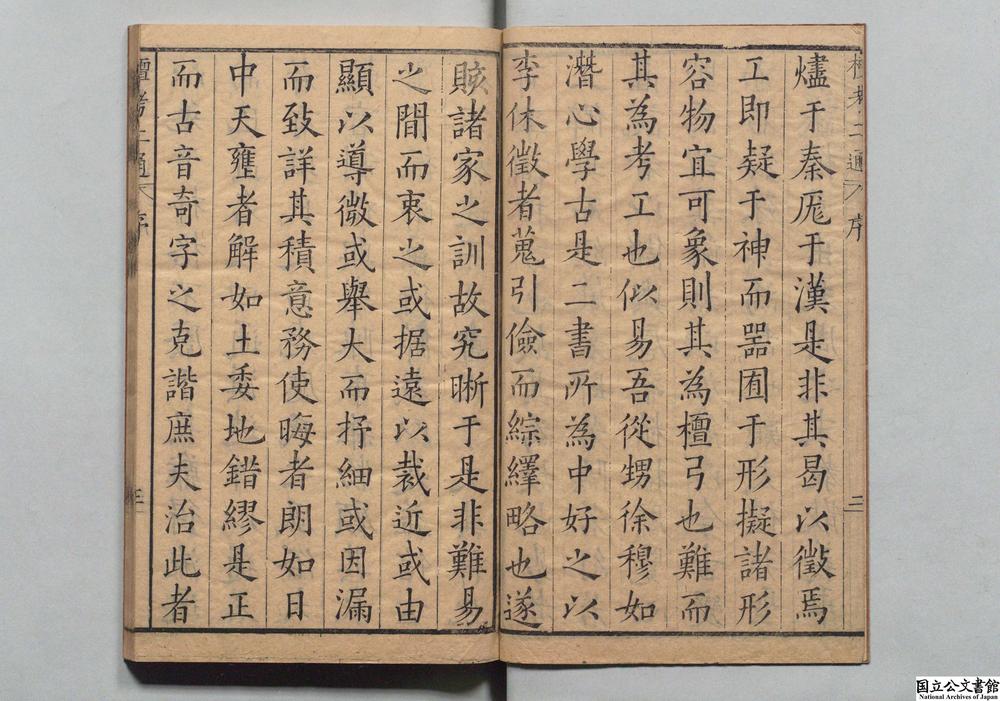 檀考二通 序 三
燼于秦厖于漢是非其曷以徵焉
工即疑于神而噐囿于形擬諸形
容物宜可象則其為檀弓也難而
其為考工也似易吾從甥徐穆如
潛心學古是二書所為中好之以
李休徵者蒐引儉而綜繹略也遂
賅諸家之訓故究晰于是非難易
之間而衷之或据遠以裁近或由
顯以導微或舉大而抒細或因漏
而致詳其積意務使晦者朗如日
中天壅者解如土委地錯繆是正
而古音奇字之克諧庶夫治此者
檀考二通 序 三
国立公文書館
National Archives of Japan